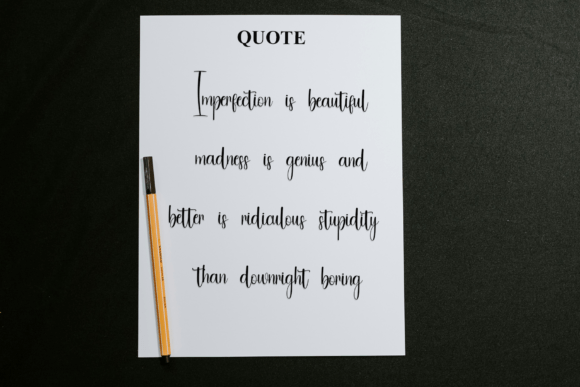 QUOTE
Imperfection is beautiful
madness is genius and
better is ridiculous stupidity
than downright boring